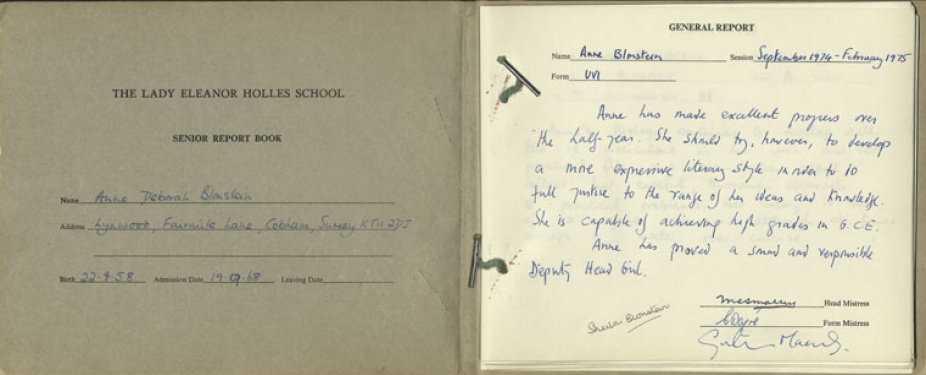 THE LADY ELEANOR HOLLES SCHOOL
SENIOR REPORT BOOK
Name Anne Deborah Blonstein
Address Lynwood, Fairmile Lane, Cobham, Surrey, KT11 2DJ
Birth 22.4.58 Admission Date 19.9.68 Leaving Date
GENERAL REPORT
Name Anne Blonstein Session September 1974 - February 1975
Form UVI
Anne has made excellent progress over
the half-year. She should try, however, to develop
a more expressive literary style in order to do
full justice to the range of her ideas and knowledge.
She is capable of achieving high grades in G.C.E.
Anne has proved a sound and responsible
Deputy Head Girl.
Head Mistress
Form Mistress
Sheila Blonstein